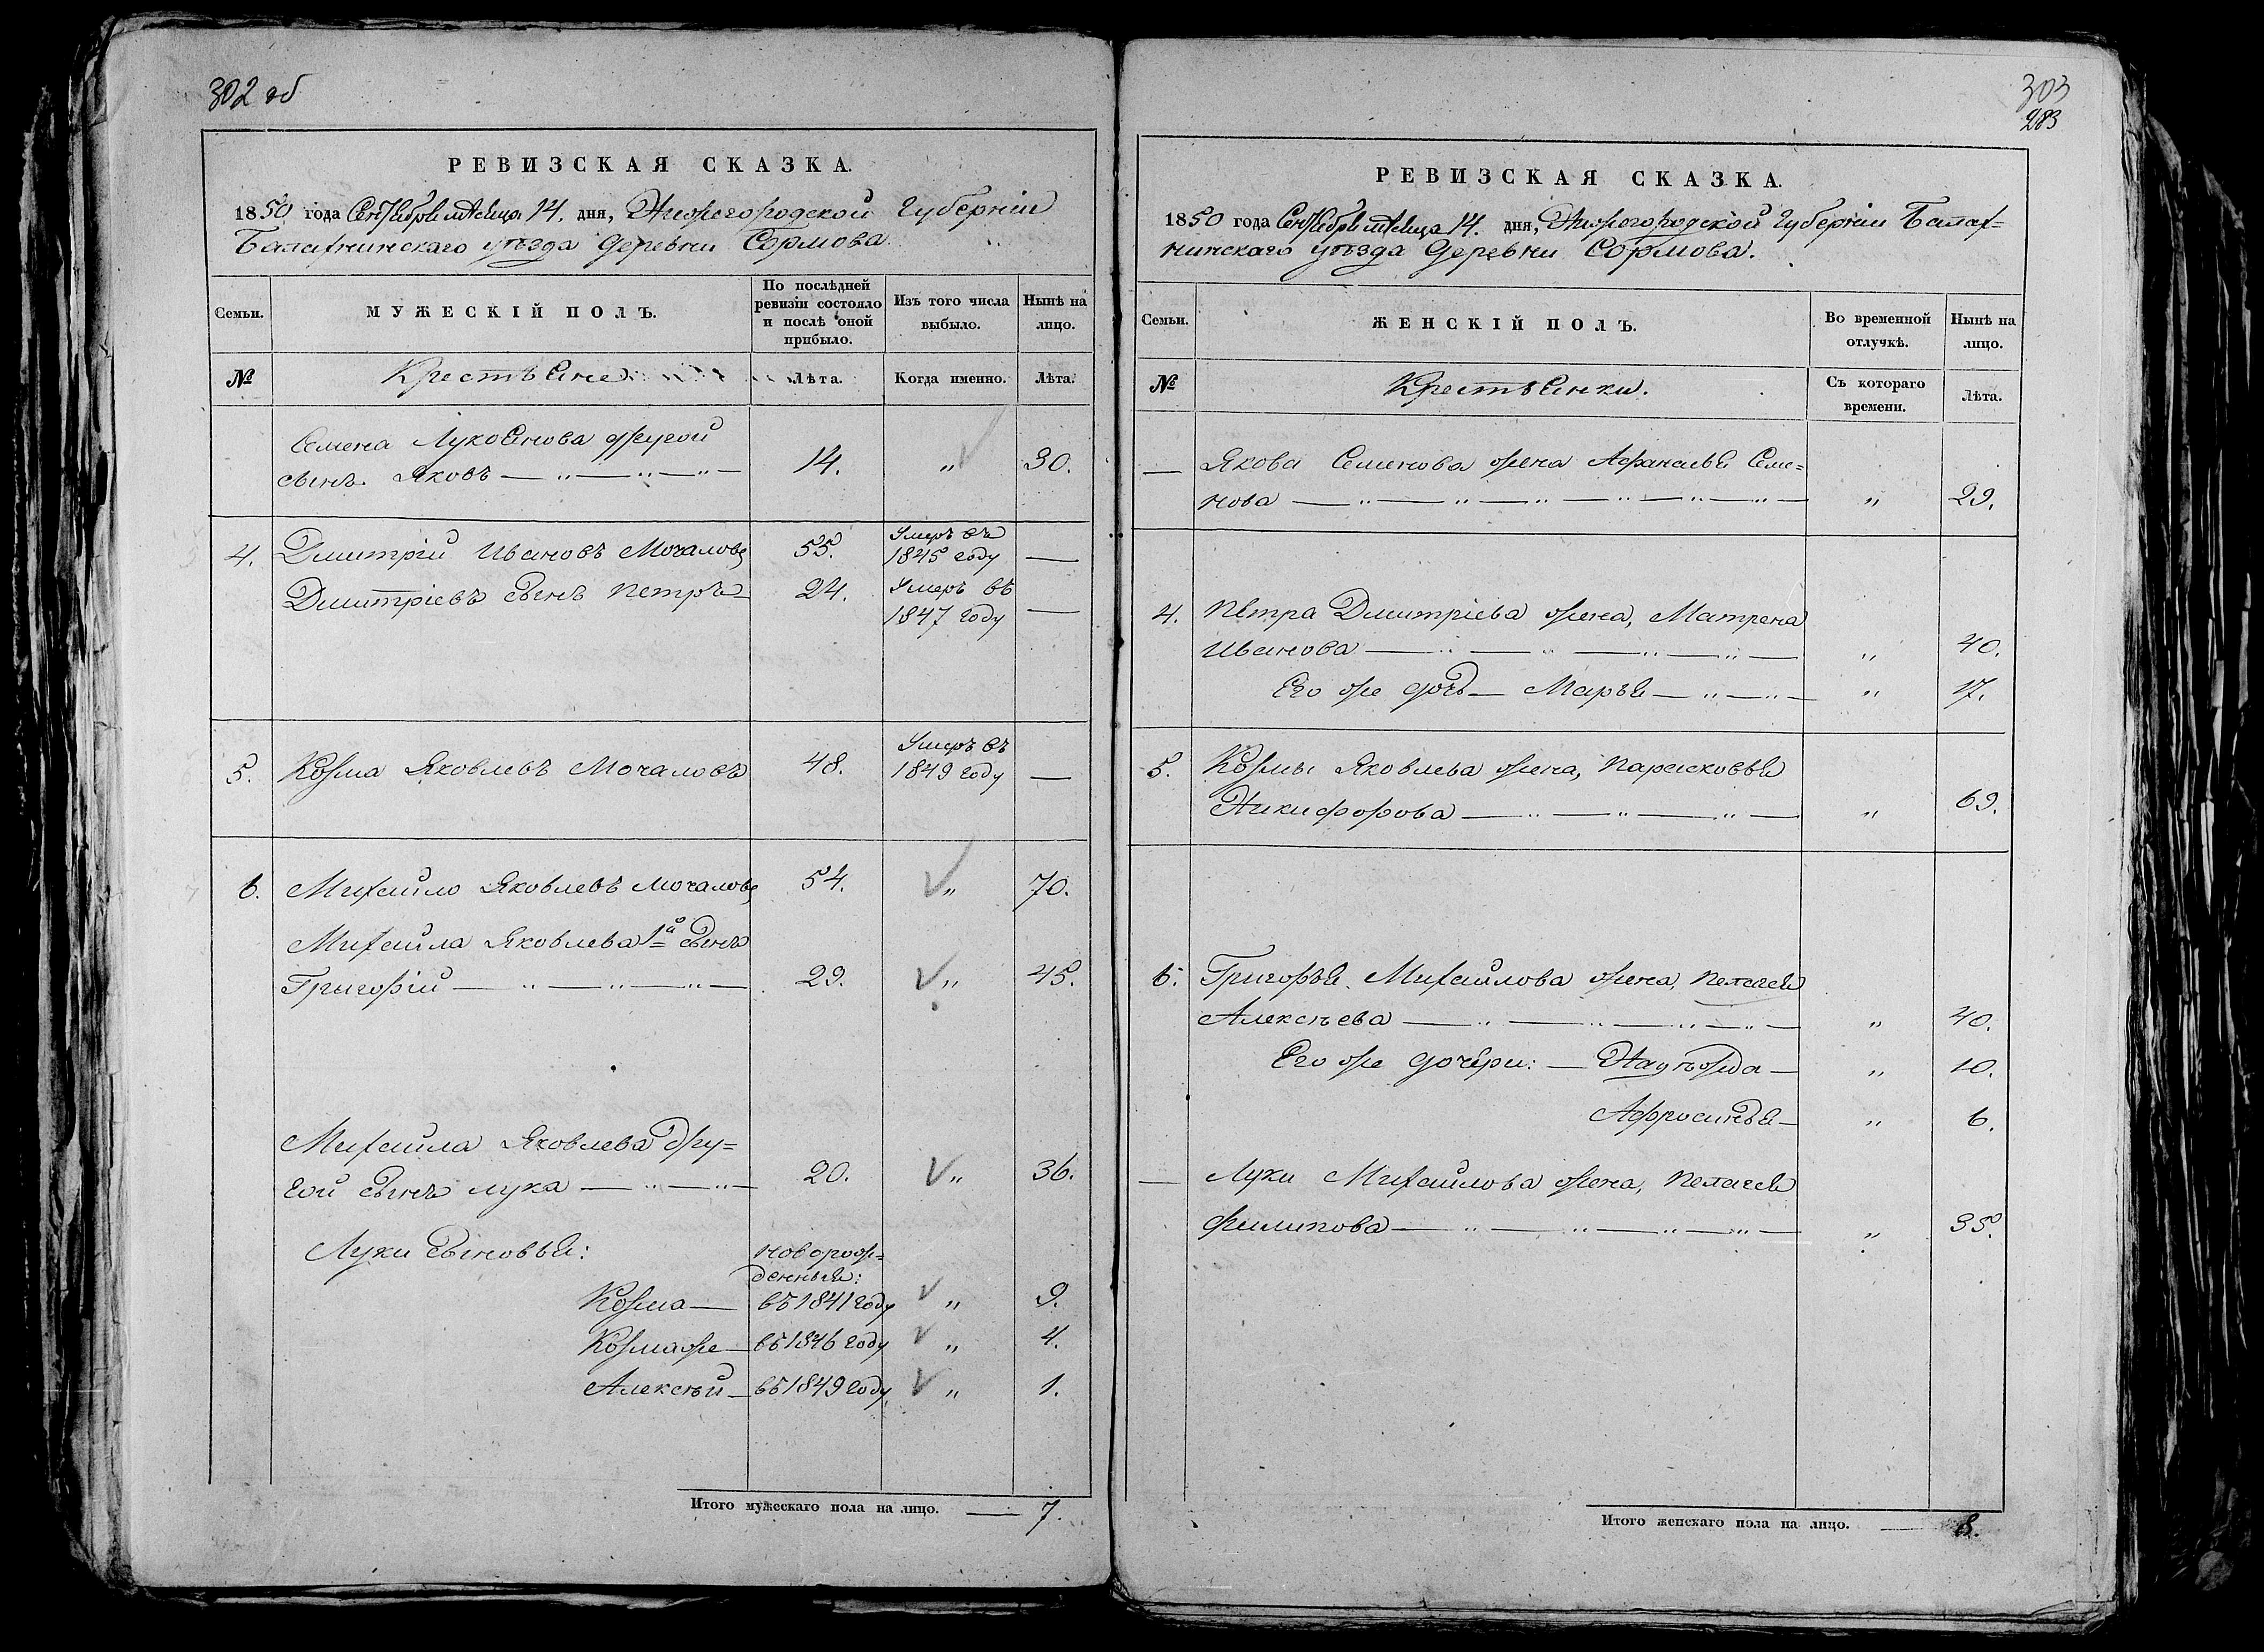 302 об
РЕВИЗСКАЯ СКАЗКА.
1850 года Сентября месяца 14. дня, Нижегородской Губерніи
Балахнинскаго уѣзда деревни Сормова
Семьи.
МУЖЕСКІЙ ПОЛЪ.
По послѣдней ревизіи состояло и послѣ оной прибыло.
Изъ того числа выбыло.
Нынѣ на лицо.
№ Крестьяне Лѣта. Когда именно. Лѣта.
Семена Лукоянова другой
сынъ Яковъ — „ — „ — „ — 14. „ 30.
4. Дмитрій Ивановъ Мочаловъ 55. Умеръ въ 1845 году —
Дмитріевъ сынъ Петръ — 24. Умеръ въ 1847 году —
5. Козма Яковлевъ Мочаловъ 48. Умеръ въ 1849 году —
6. Михайло Яковлевъ Мочаловъ 54. „ 70.
Михайла Яковлева 1й сынъ
Григорій — „ — „ — „ — 29. „ 45.
Михайла Яковлева дру=
гой сынъ Лука — „ — „ — 20. „ 36.
Луки сыновья: новорож=
денныя:
Козма — въ 1841 году „ 9.
Козма же — въ 1846 году „ 4.
Алексѣй — въ 1849 году „ 1.
Итого мужескаго пола на лицо. — 7.
303
283
РЕВИЗСКАЯ СКАЗКА.
1850 года Сентября месяца 14. дня, Нижегородской Губерніи Балах=
нинскаго уѣзда деревни Сормова.
Семьи.
ЖЕНСКІЙ ПОЛЪ.
Во временной отлучкѣ.
Нынѣ на лицо.
№ Крестьянки. Съ котораго времени. Лѣта.
— Якова Семенова жена Афанасья Семе=
нова — „ — „ — „ — „ — „ — „ — „ 29.
4. Петра Дмитріева жена, Матрена
Иванова — „ — „ — „ — „ — „ 40.
Его же дочь — Марья — „ — „ — „ 17.
5. Козмы Яковлева жена, Парасковья
Никифорова — „ — „ — „ — „ 69.
6. Григорья Михайлова жена, Пелагея
Алексѣева — „ — „ — „ — „ — „ 40.
Его же дочери: — Надѣжда — „ 10.
Афросинья — „ 6.
— Луки Михайлова жена, Пелагея
Филипова — „ — „ — „ — „ — „ 35.
Итого женскаго пола на лицо. — 8.